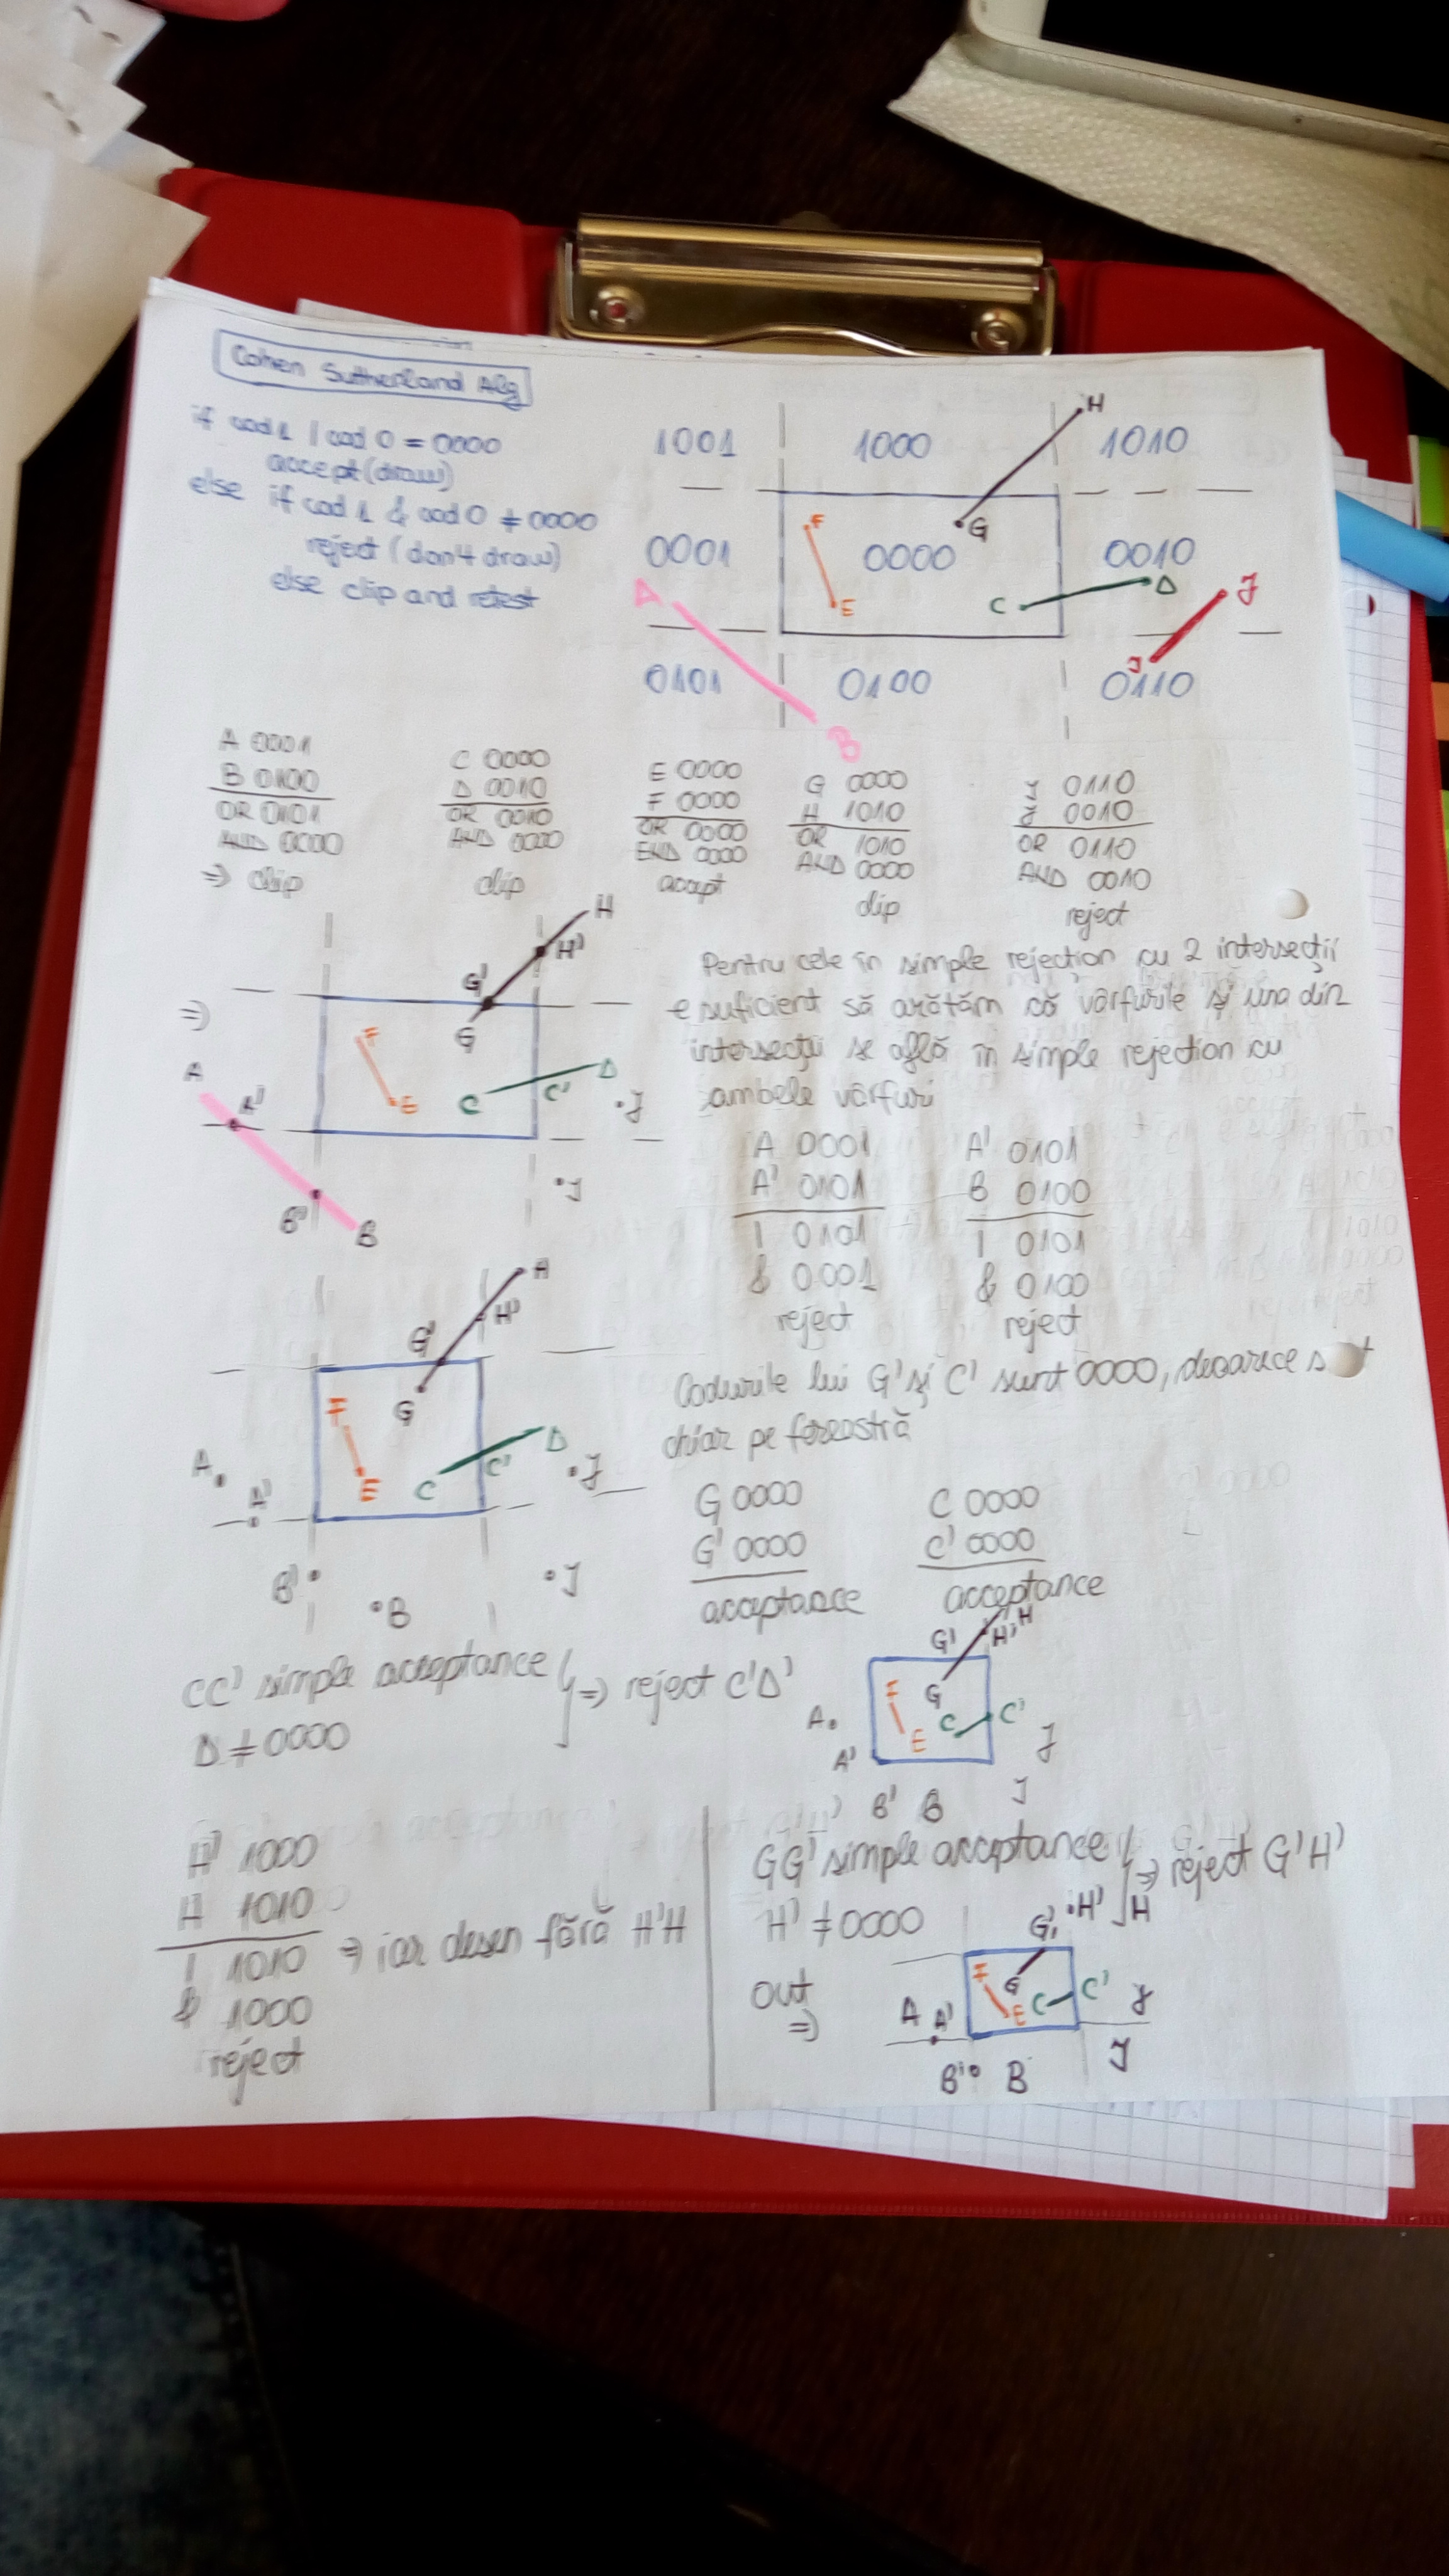 Cohen Sutherland Alg
if cod 1 | cod 0 = 0000
accept (draw)
else if cod 1 & cod 0 ≠ 0000
reject (don't draw)
else clip and retest
1001 1000 1010 H
0001 F 0000 G 0010
A E C D J
0101 0100 0110 I
B
A 0001
B 0100
OR 0101
AND 0000
=> clip
C 0000
D 0010
OR 0010
AND 0000
clip
E 0000
F 0000
OR 0000
END 0000
accept
G 0000
H 1010
OR 1010
AND 0000
clip
I 0110
J 0010
OR 0110
AND 0010
reject
H
H'
G'
=> G
F
A D
A' E C C' J
I
B' B
Pentru cele în simple rejection cu 2 intersecții
e suficient să arătăm că vârfurile și una din
intersecții se află în simple rejection cu
ambele vârfuri
A 0001
A' 0101
| 0101
& 0001
reject
A' 0101
B 0100
| 0101
& 0100
reject
H
H'
G'
G
F
D
A C' J
E C
A'
B' I
B
Codurile lui G' și C' sunt 0000, deoarece
chiar pe fereastră
G 0000
G' 0000
acceptance
C 0000
C' 0000
acceptance
CC' simple acceptance
D ≠ 0000
=> reject C'D'
H
G' H'
F G
A C C'
E J
A'
B' B I
H' 1000
H 1010
| 1010 => iar desen fără H'H
& 1000
reject
GG' simple acceptance
H' ≠ 0000
=> reject G'H'
out
=>
G' H' H
F G
A A' E C C' J
B' B I